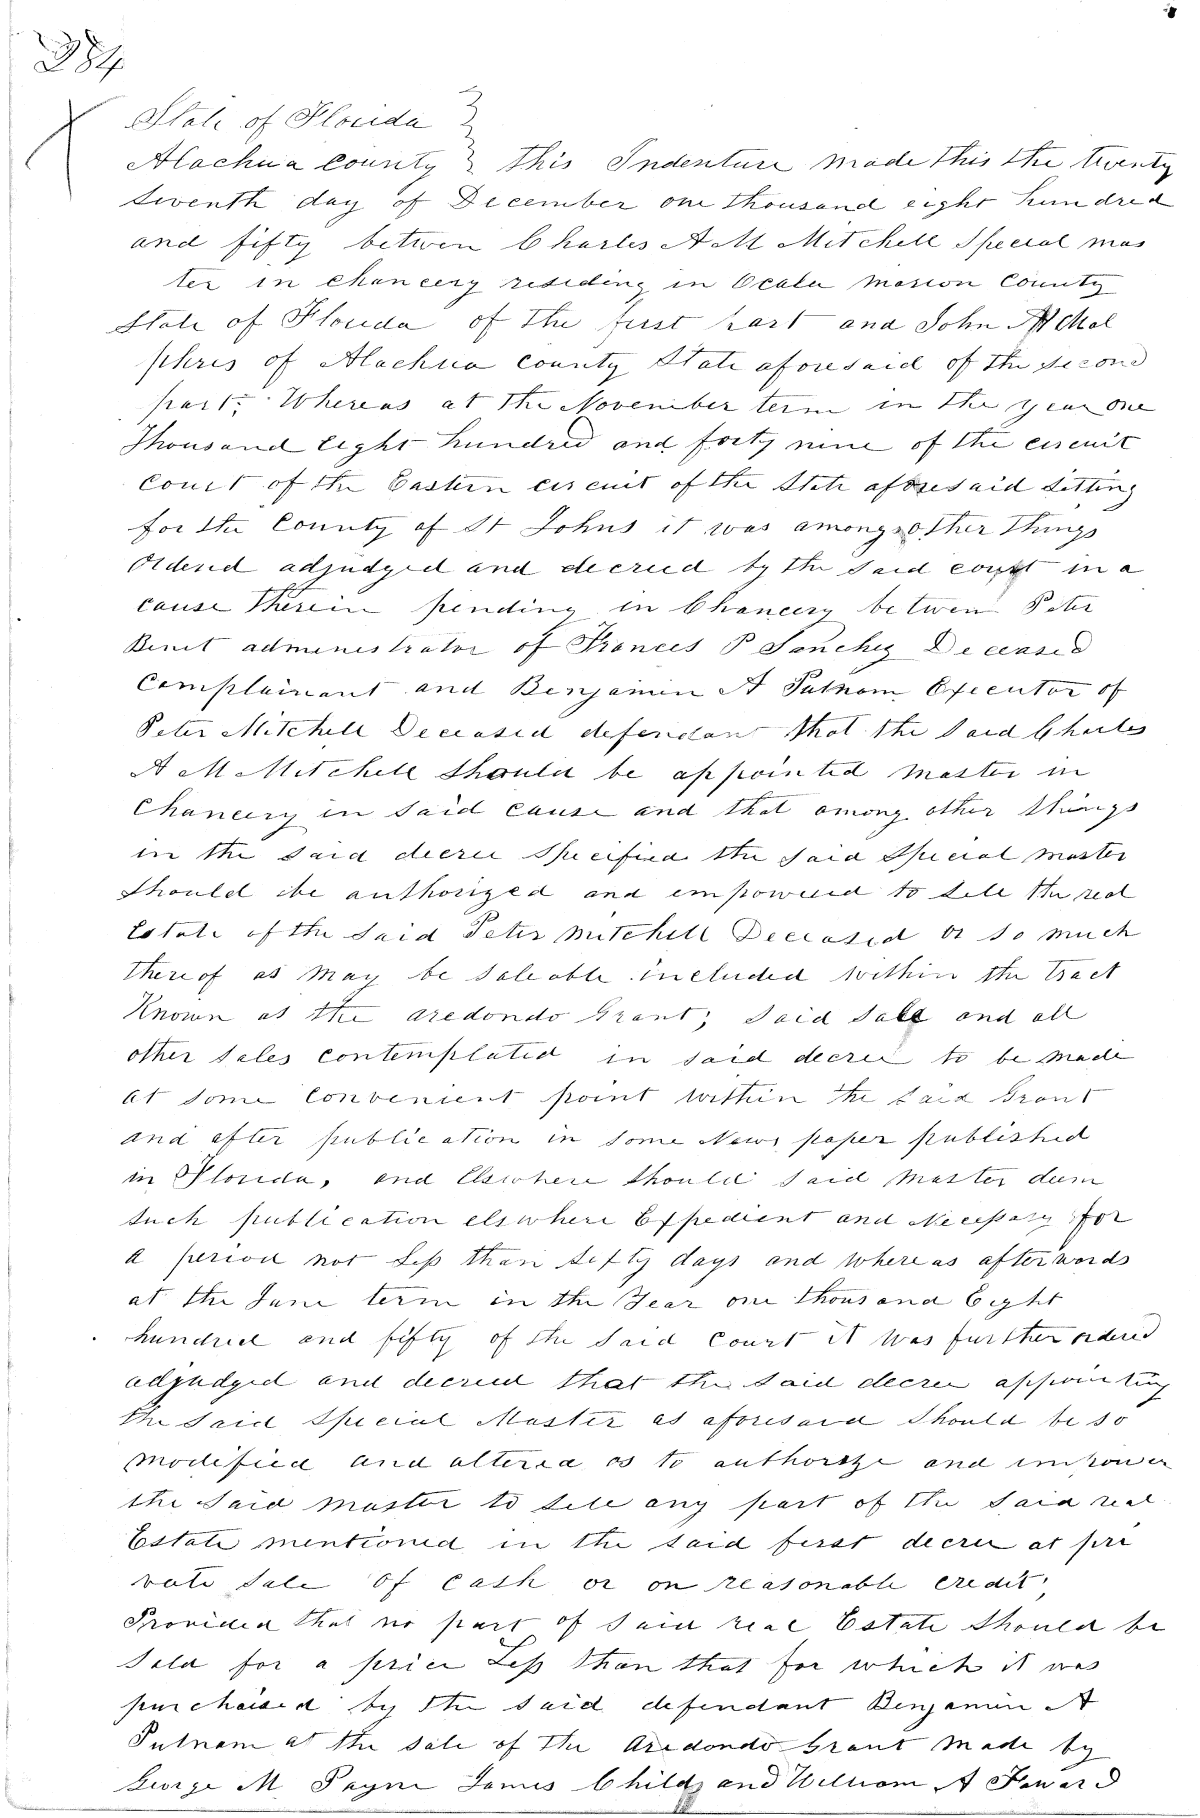 384
State of Florida
Alachua County } this Indenture made this the twenty
seventh day of December one thousand eight hundred
and fifty betwen Charles A M Mitchell Special mas
ter in chancery residing in Ocala Marion County
State of Florida of the first part and John
phres of Alachua County State aforesaid of the second
part; Whereas at the November term in the year one
Thousand Eight hundred and forty nine of the circuit
Court of the Eastern circuit of the State aforesaid sitting
for the County of St Johns it was among other things
Ordered adjudged and decreed by the said court in a
cause therein pending in Chancery betwen Peter
Benet administrator of Frances P Sanchez Deceased
Complainant and Benjamin A Putnam Executor of
Peter Mitchell Deceased defendant that the said Charles
A M Mitchell should be appointed Master in
Chancery in said cause and that among other things
in the said decree specified the said special master
should be authorized and empowered to sell the real
Estate of the said Peter Mitchell Deceased or so much
thereof as may be saleable included within the tract
Known as the aredondo Grant; said sale and all
other sales contemplated in said decree to be made
at some convenient point within the said Grant
and after publication in some News paper published
in Florida, and Elsewhere should said Master deem
such publication elswhere Expedient and Necessary for
a period not Less than sixty days and whereas afterwords
at the June term in the Year one thousand Eight
hundred and fifty of the said Court it was further ordered
adjudged and decreed that the said decree appointing
the said Special Master as aforesaid should be so
modified and altered as to authorize and impower
the said master to sell any part of the said real
Estate mentioned in the said first decree at pri
vate sale of cash or on reasonable credit,
Provided that no part of said real Estate should be
sold for a price Less than that for which it was
purchased by the said defendant Benjamin A
Putnam at the sale of the Aredondo Grant made by
George M Payne James Childs and William A Foward